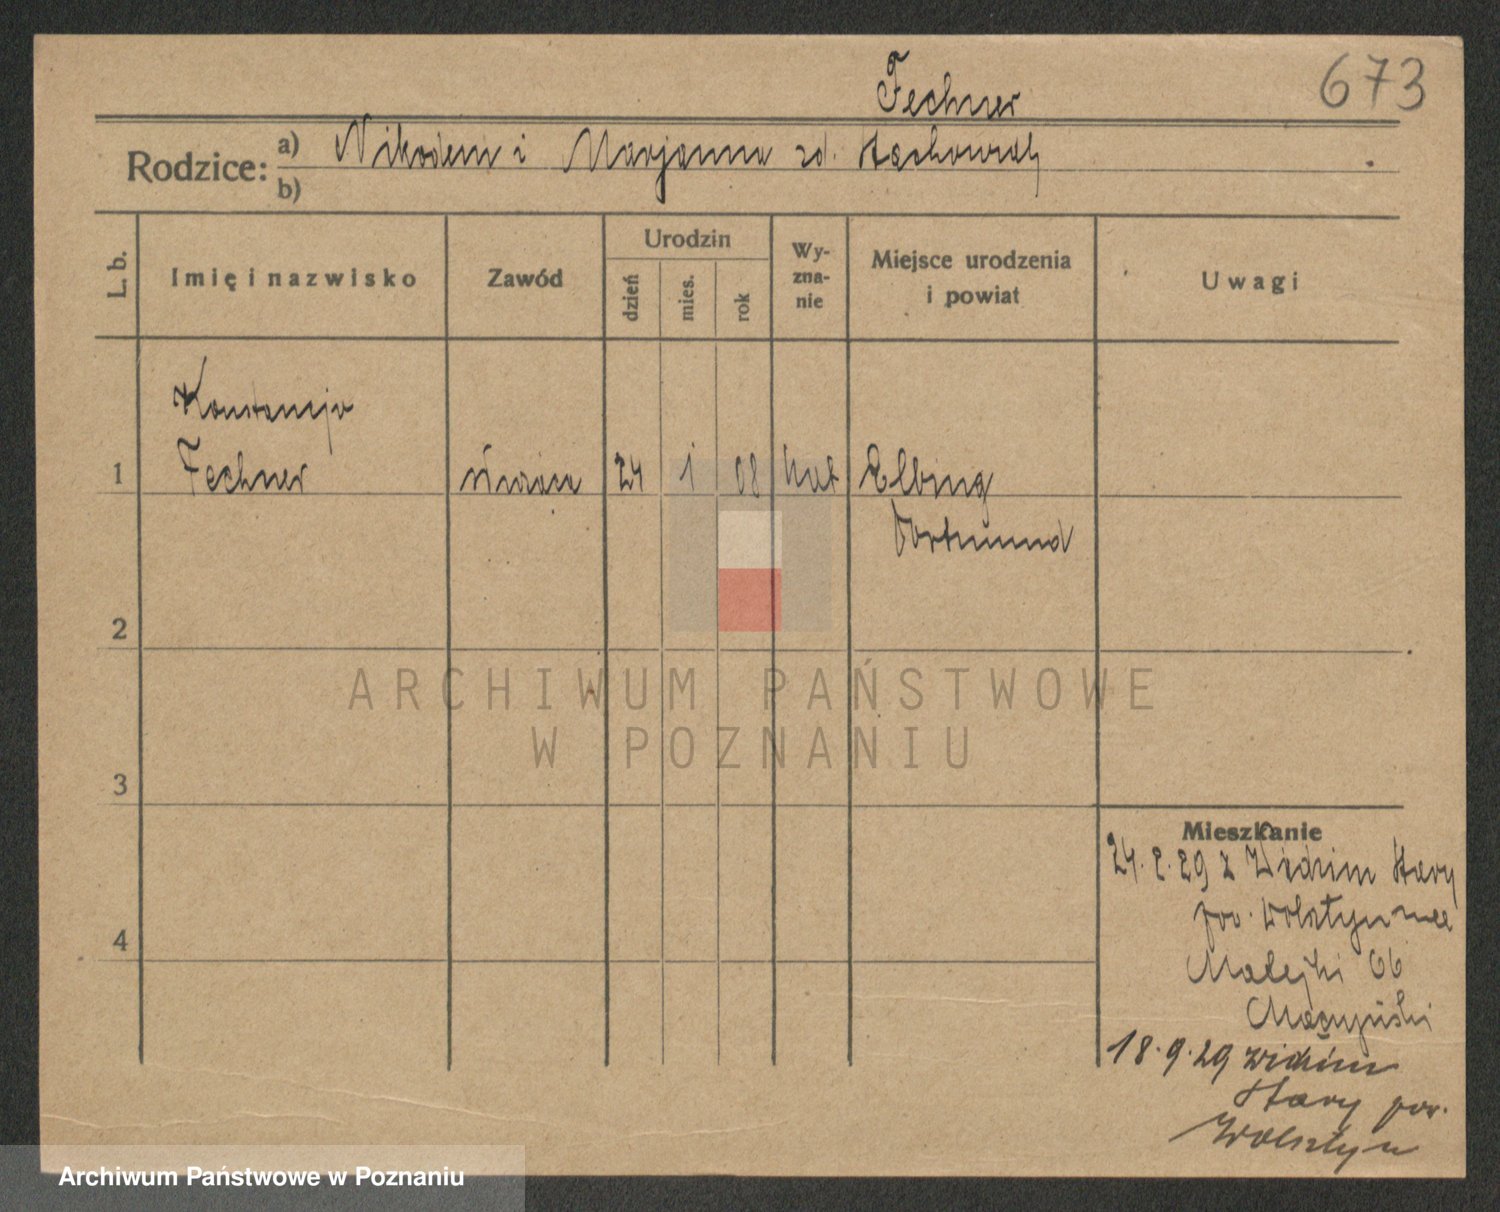 673
Fechner
Rodzice: a) Nikodem i Marjanna zd. Stachowiak
b)
L. b. Imię i nazwisko Zawód Urodzin dzień mies. rok Wyznanie Miejsce urodzenia i powiat Uwagi
Konstancja
1 Fechner 24 1 08 kat Elbing
Dortmund
2
ARCHIWUM PAŃSTWOWE
W POZNANIU
3
Mieszkanie
24. 2. 29 z Widzim Stary
4 pow. Wolsztyn
Matejki 66
18. 9. 29 Widzim
Stary pow.
Wolsztyn
Archiwum Państwowe w Poznaniu